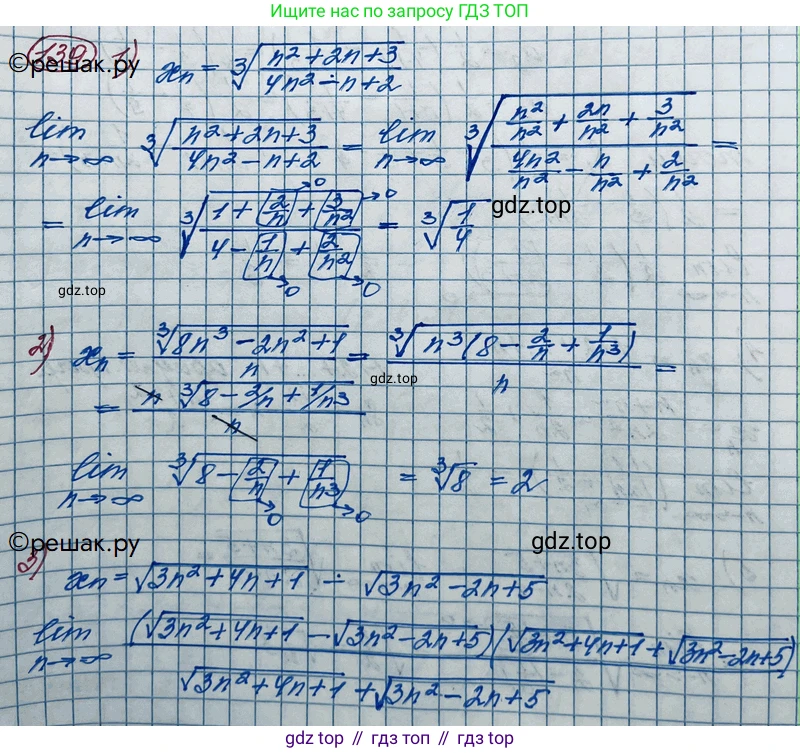 Ищите нас по запросу ГДЗ ТОП
©решак.ру
139 1) xₙ = ∛((n² + 2n + 3)/(4n² - n + 2))
lim n→∞ ∛((n² + 2n + 3)/(4n² - n + 2)) = lim n→∞ ∛((n²/n² + 2n/n² + 3/n²)/(4n²/n² - n/n² + 2/n²)) =
= lim n→∞ ∛((1 + 2/n →0 + 3/n² →0)/(4 - 1/n →0 + 2/n² →0)) = ∛(1/4)
gdz.top
gdz.top
2) xₙ = ∛(8n³ - 2n² + 1)/n = ∛(n³(8 - 2/n + 1/n³))/n =
gdz.top
= n ∛(8 - 2/n + 1/n³)/n
lim n→∞ ∛(8 - 2/n →0 + 1/n³ →0) = ∛8 = 2
©решак.ру
gdz.top
3) xₙ = √(3n² + 4n + 1) - √(3n² - 2n + 5)
lim n→∞ (√(3n² + 4n + 1) - √(3n² - 2n + 5))(√(3n² + 4n + 1) + √(3n² - 2n + 5))/(√(3n² + 4n + 1) + √(3n² - 2n + 5))
gdz.top // гдз.топ // гдз top